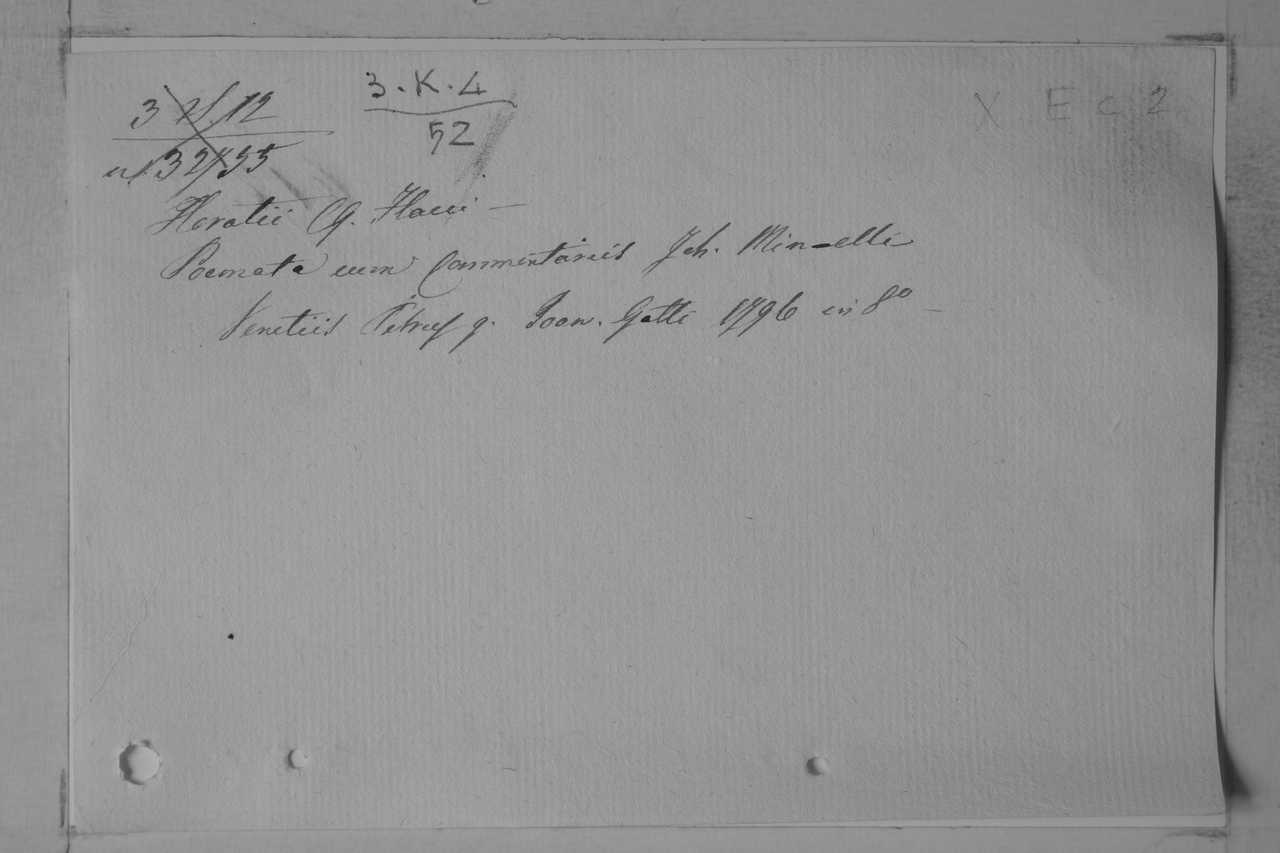 3.K.4
52
X E C 2
Horatii Q. Flacci —
Poemata cum Commentariis Joh. Min-elli
Venetiis Petrus q. Joan. Gatti 1796 in 8º —